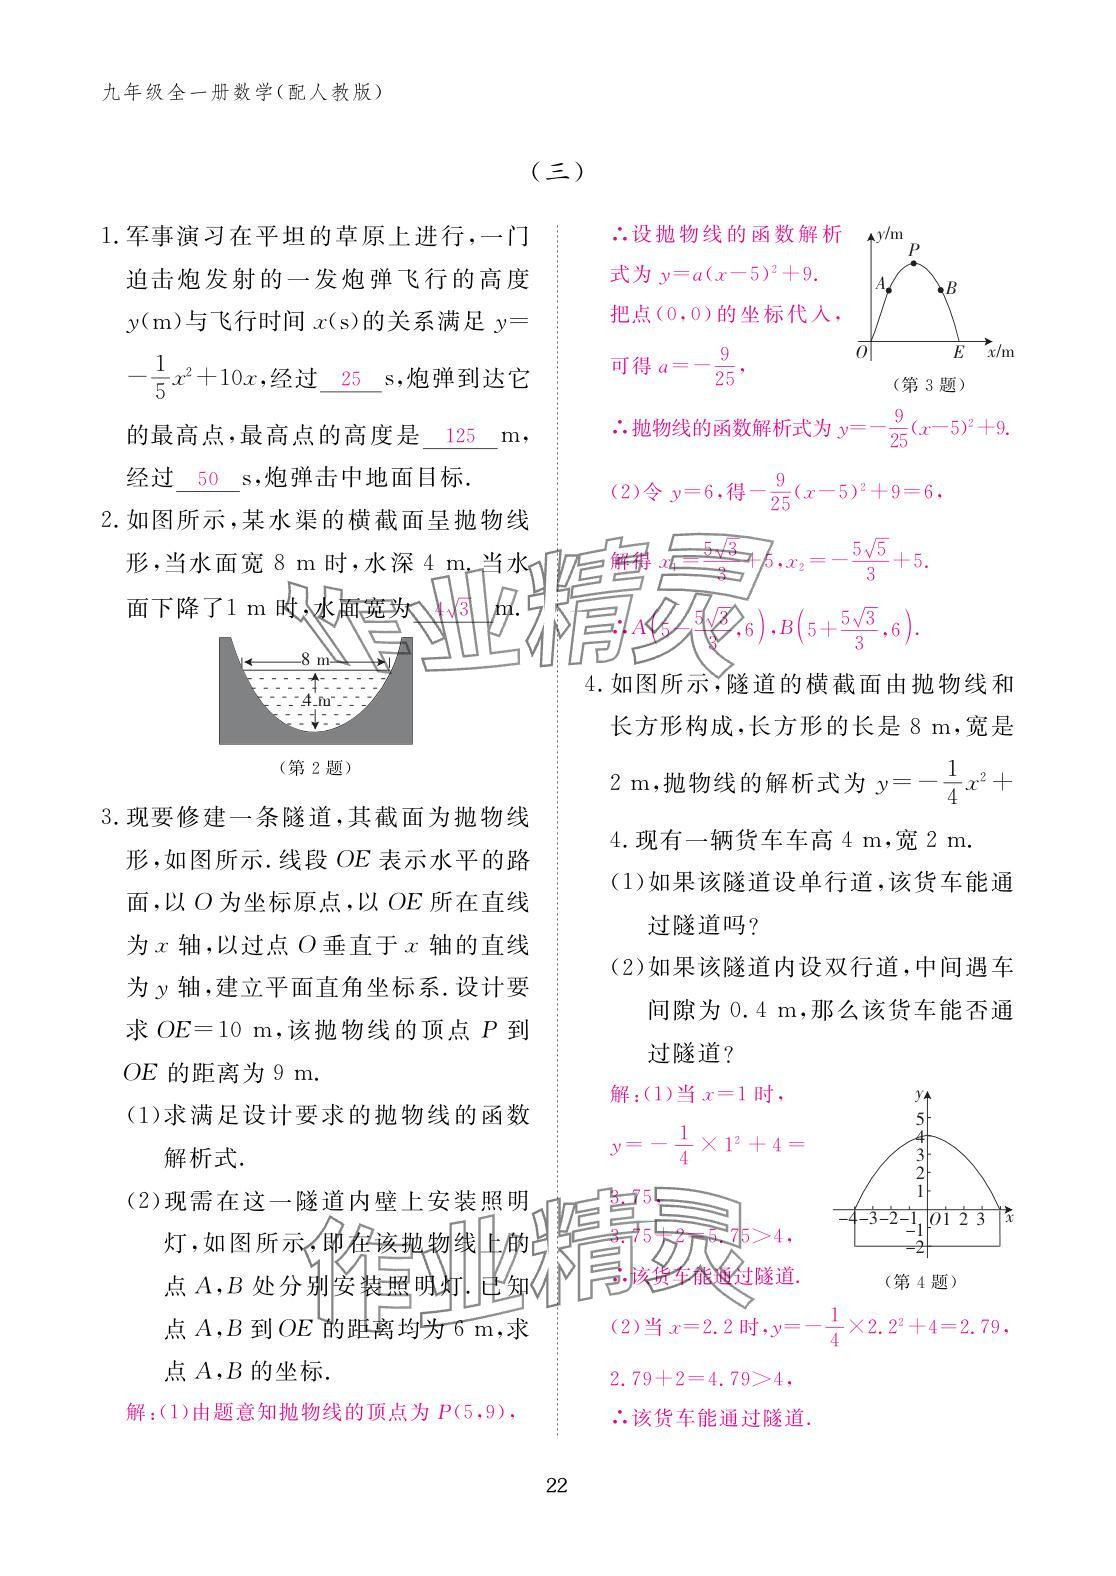 九年级全一册数学(配人教版)
(三)
1. 军事演习在平坦的草原上进行,一门
迫击炮发射的一发炮弹飞行的高度
y(m)与飞行时间 x(s)的关系满足 y=
-1/5x²+10x,经过 25 s,炮弹到达它
的最高点,最高点的高度是 125 m,
经过 50 s,炮弹击中地面目标.
2. 如图所示,某水渠的横截面呈抛物线
形,当水面宽 8 m 时,水深 4 m. 当水
面下降了1 m 时,水面宽为 4√3 m.
8 m
4 m
(第 2 题)
3. 现要修建一条隧道,其截面为抛物线
形,如图所示. 线段 OE 表示水平的路
面,以 O 为坐标原点,以 OE 所在直线
为 x 轴,以过点 O 垂直于 x 轴的直线
为 y 轴,建立平面直角坐标系. 设计要
求 OE=10 m,该抛物线的顶点 P 到
OE 的距离为 9 m.
(1)求满足设计要求的抛物线的函数
解析式.
(2)现需在这一隧道内壁上安装照明
灯,如图所示,即在该抛物线上的
点 A,B 处分别安装照明灯. 已知
点 A,B 到 OE 的距离均为 6 m,求
点 A,B 的坐标.
解:(1)由题意知抛物线的顶点为 P(5,9),
∴设抛物线的函数解析
式为 y=a(x-5)²+9.
把点(0,0)的坐标代入,
可得 a=-9/25,
y/m
P
A
B
O
E
x/m
(第 3 题)
∴抛物线的函数解析式为 y=-9/25(x-5)²+9.
(2)令 y=6,得-9/25(x-5)²+9=6,
解得 x₁=5√3/3+5,x₂=-5√5/3+5.
∴A(5-5√3/3,6),B(5+5√3/3,6).
4. 如图所示,隧道的横截面由抛物线和
长方形构成,长方形的长是 8 m,宽是
2 m,抛物线的解析式为 y=-1/4x²+
4. 现有一辆货车车高 4 m,宽 2 m.
(1)如果该隧道设单行道,该货车能通
过隧道吗?
(2)如果该隧道内设双行道,中间遇车
间隙为 0.4 m,那么该货车能否通
过隧道?
解:(1)当 x=1 时,
y=-1/4×1²+4=
3.75,
3.75+2=5.75>4,
∴该货车能通过隧道.
y
5
4
3
2
1
-4-3-2-1 O 1 2 3 x
-1
-2
(第 4 题)
(2)当 x=2.2 时,y=-1/4×2.2²+4=2.79,
2.79+2=4.79>4,
∴该货车能通过隧道.
22
作业精灵
作业精灵